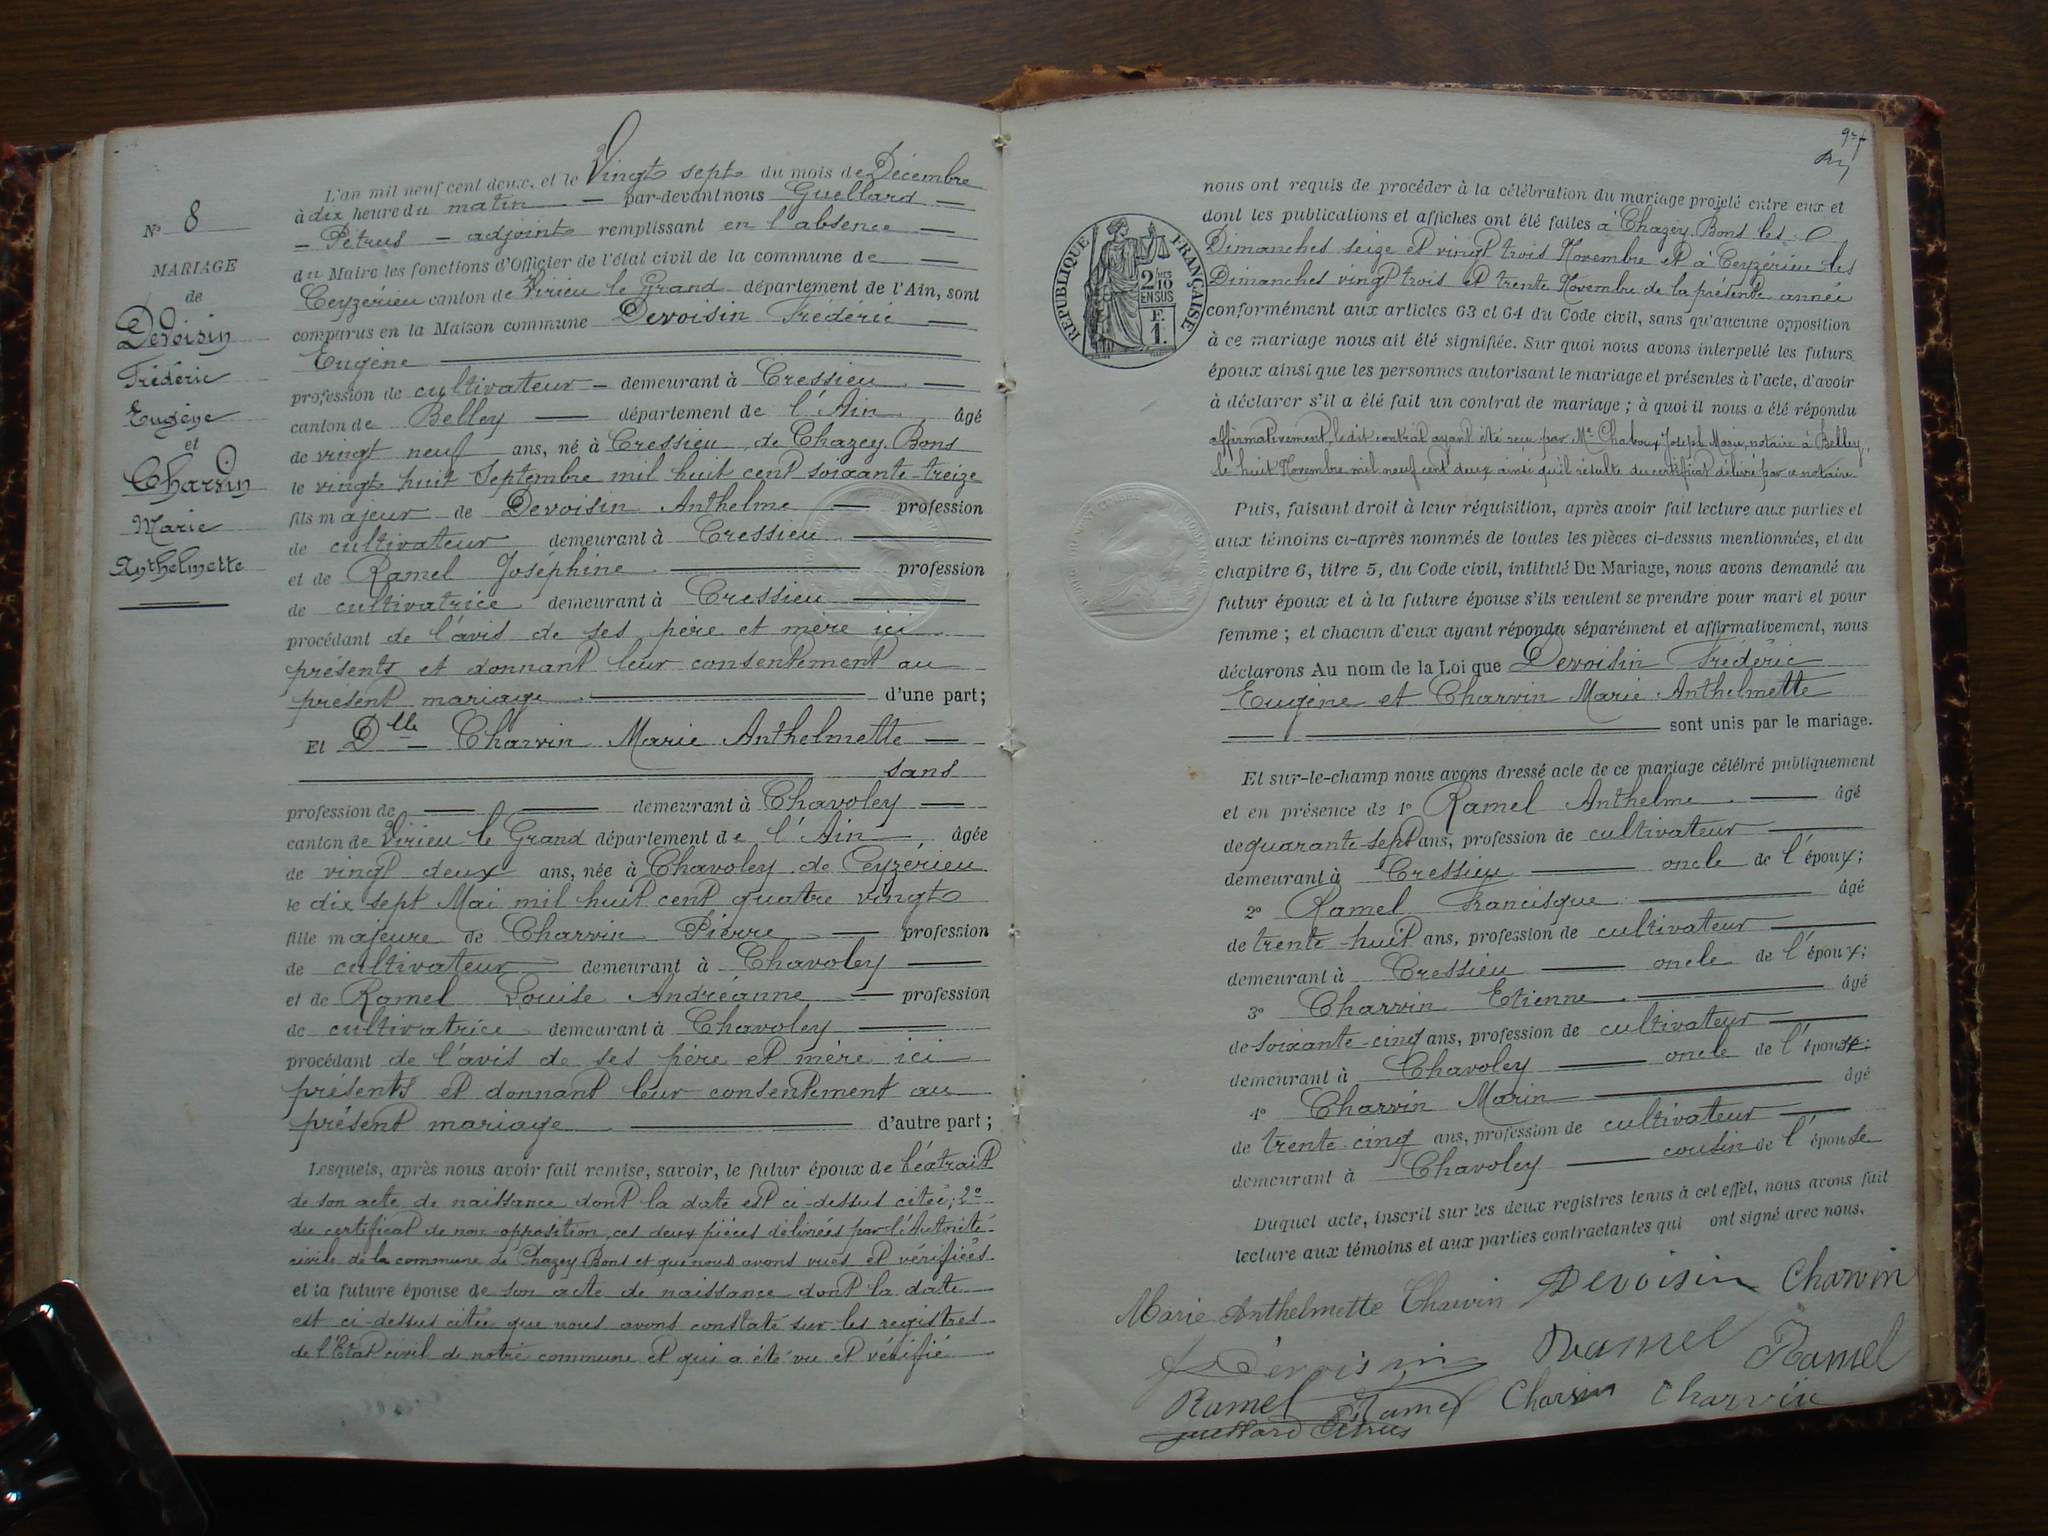 Nº 8
MARIAGE
de
Devoisin
Fréderic
Eugène
et
Charvin
Marie
Anthelmette
L'an mil neuf cent deux, et le Vingt sept du mois de Décembre
à dix heure du matin — par-devant nous Guellard —
— Pétrus — adjoint remplissant en l'absence —
du Maire les fonctions d'Officier de l'état civil de la commune de —
Ceyzérieu canton de Virieu le Grand département de l'Ain, sont
comparus en la Maison commune Devoisin Frédéric —
Eugène
profession de cultivateur — demeurant à Cressieu —
canton de Belley — département de l'Ain âgé
de vingt neuf ans, né à Cressieu de Chazey-Bons
le vingt huit Septembre mil huit cent soixante-treize
fils majeur de Devoisin Anthelme — profession
de cultivateur demeurant à Cressieu —
et de Ramel Joséphine — profession
de cultivatrice demeurant à Cressieu —
procédant de l'avis de ses père et mère ici
présents et donnant leur consentement au
présent mariage — d'une part;
Et Dlle Charvin Marie Anthelmette —
sans
profession de — — demeurant à Chavoley —
canton de Virieu le Grand département de l'Ain âgée
de vingt deux ans, née à Chavoley de Ceyzérieu
le dix sept Mai mil huit cent quatre vingt
fille majeure de Charvin Pierre — profession
de cultivateur demeurant à Chavoley —
et de Ramel Louise Andréanne — profession
de cultivatrice demeurant à Chavoley —
procédant de l'avis de ses père et mère ici
présents et donnant leur consentement au
présent mariage — d'autre part;
Lesquels, après nous avoir fait remise, savoir, le futur époux de l'extrait
de son acte de naissance dont la date est ci-dessus citée; 2º
du certificat de non opposition, ces deux pièces délivrées par l'Autorité
civile de la commune de Chazey Bons et que nous avons vues et vérifiées
et la future épouse de son acte de naissance dont la date
est ci-dessus citée que nous avons constaté sur les registres
de l'Etat civil de notre commune et qui a été vu et vérifié
nous ont requis de procéder à la célébration du mariage projeté entre eux et
dont les publications et affiches ont été faites à Chazey Bons les
Dimanches seize et vingt trois Novembre et à Ceyzérieu les
Dimanches vingt trois et trente Novembre de la présente année
conformément aux articles 63 et 64 du Code civil, sans qu'aucune opposition
à ce mariage nous ait été signifiée. Sur quoi nous avons interpellé les futurs
époux ainsi que les personnes autorisant le mariage et présentes à l'acte, d'avoir
à déclarer s'il a été fait un contrat de mariage; à quoi il nous a été répondu
affirmativement, ledit contrat ayant été reçu par Me Chaboux Joseph Marie, notaire à Belley,
le huit Novembre mil neuf cent deux ainsi qu'il résulte du certificat délivré par ce notaire
RÉPUBLIQUE FRANÇAISE
2/10
EN SUS
F.
1.
Puis, faisant droit à leur réquisition, après avoir fait lecture aux parties et
aux témoins ci-après nommés de toutes les pièces ci-dessus mentionnées, et du
chapitre 6, titre 5, du Code civil, intitulé Du Mariage, nous avons demandé au
futur époux et à la future épouse s'ils veulent se prendre pour mari et pour
femme; et chacun d'eux ayant répondu séparément et affirmativement, nous
déclarons Au nom de la Loi que Devoisin Frédéric
Eugène et Charvin Marie Anthelmette
— sont unis par le mariage.
Et sur-le-champ nous avons dressé acte de ce mariage célébré publiquement
et en présence de 1º Ramel Anthelme — âgé
de quarante-sept ans, profession de cultivateur —
demeurant à Cressieu — oncle de l'époux;
2º Ramel Francisque — âgé
de trente-huit ans, profession de cultivateur —
demeurant à Cressieu — oncle de l'époux;
3º Charvin Etienne — âgé
de soixante-cinq ans, profession de cultivateur —
demeurant à Chavoley — oncle de l'épouse;
4º Charvin Marin — âgé
de trente-cinq ans, profession de cultivateur —
demeurant à Chavoley — cousin de l'épouse
Duquel acte, inscrit sur les deux registres tenus à cet effet, nous avons fait
lecture aux témoins et aux parties contractantes qui ont signé avec nous.
Marie Anthelmette Charvin Devoisin Charvin
Devoisin Ramel Ramel
Ramel Ramel Charvin Charvin
Guellard Pétrus